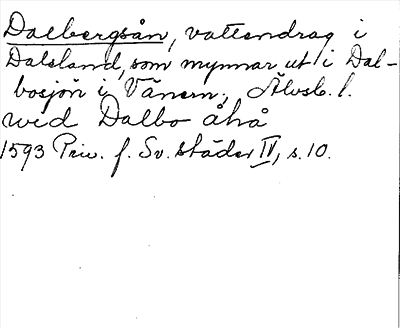 Dalbergsån, vattendrag i
Dalsland, som mynnar ut i Dal-
bosjön i Vänern, Älvsb. l.
wid Dalbo åhå
1593 Priv. f. Sv. städer IV, s. 10.